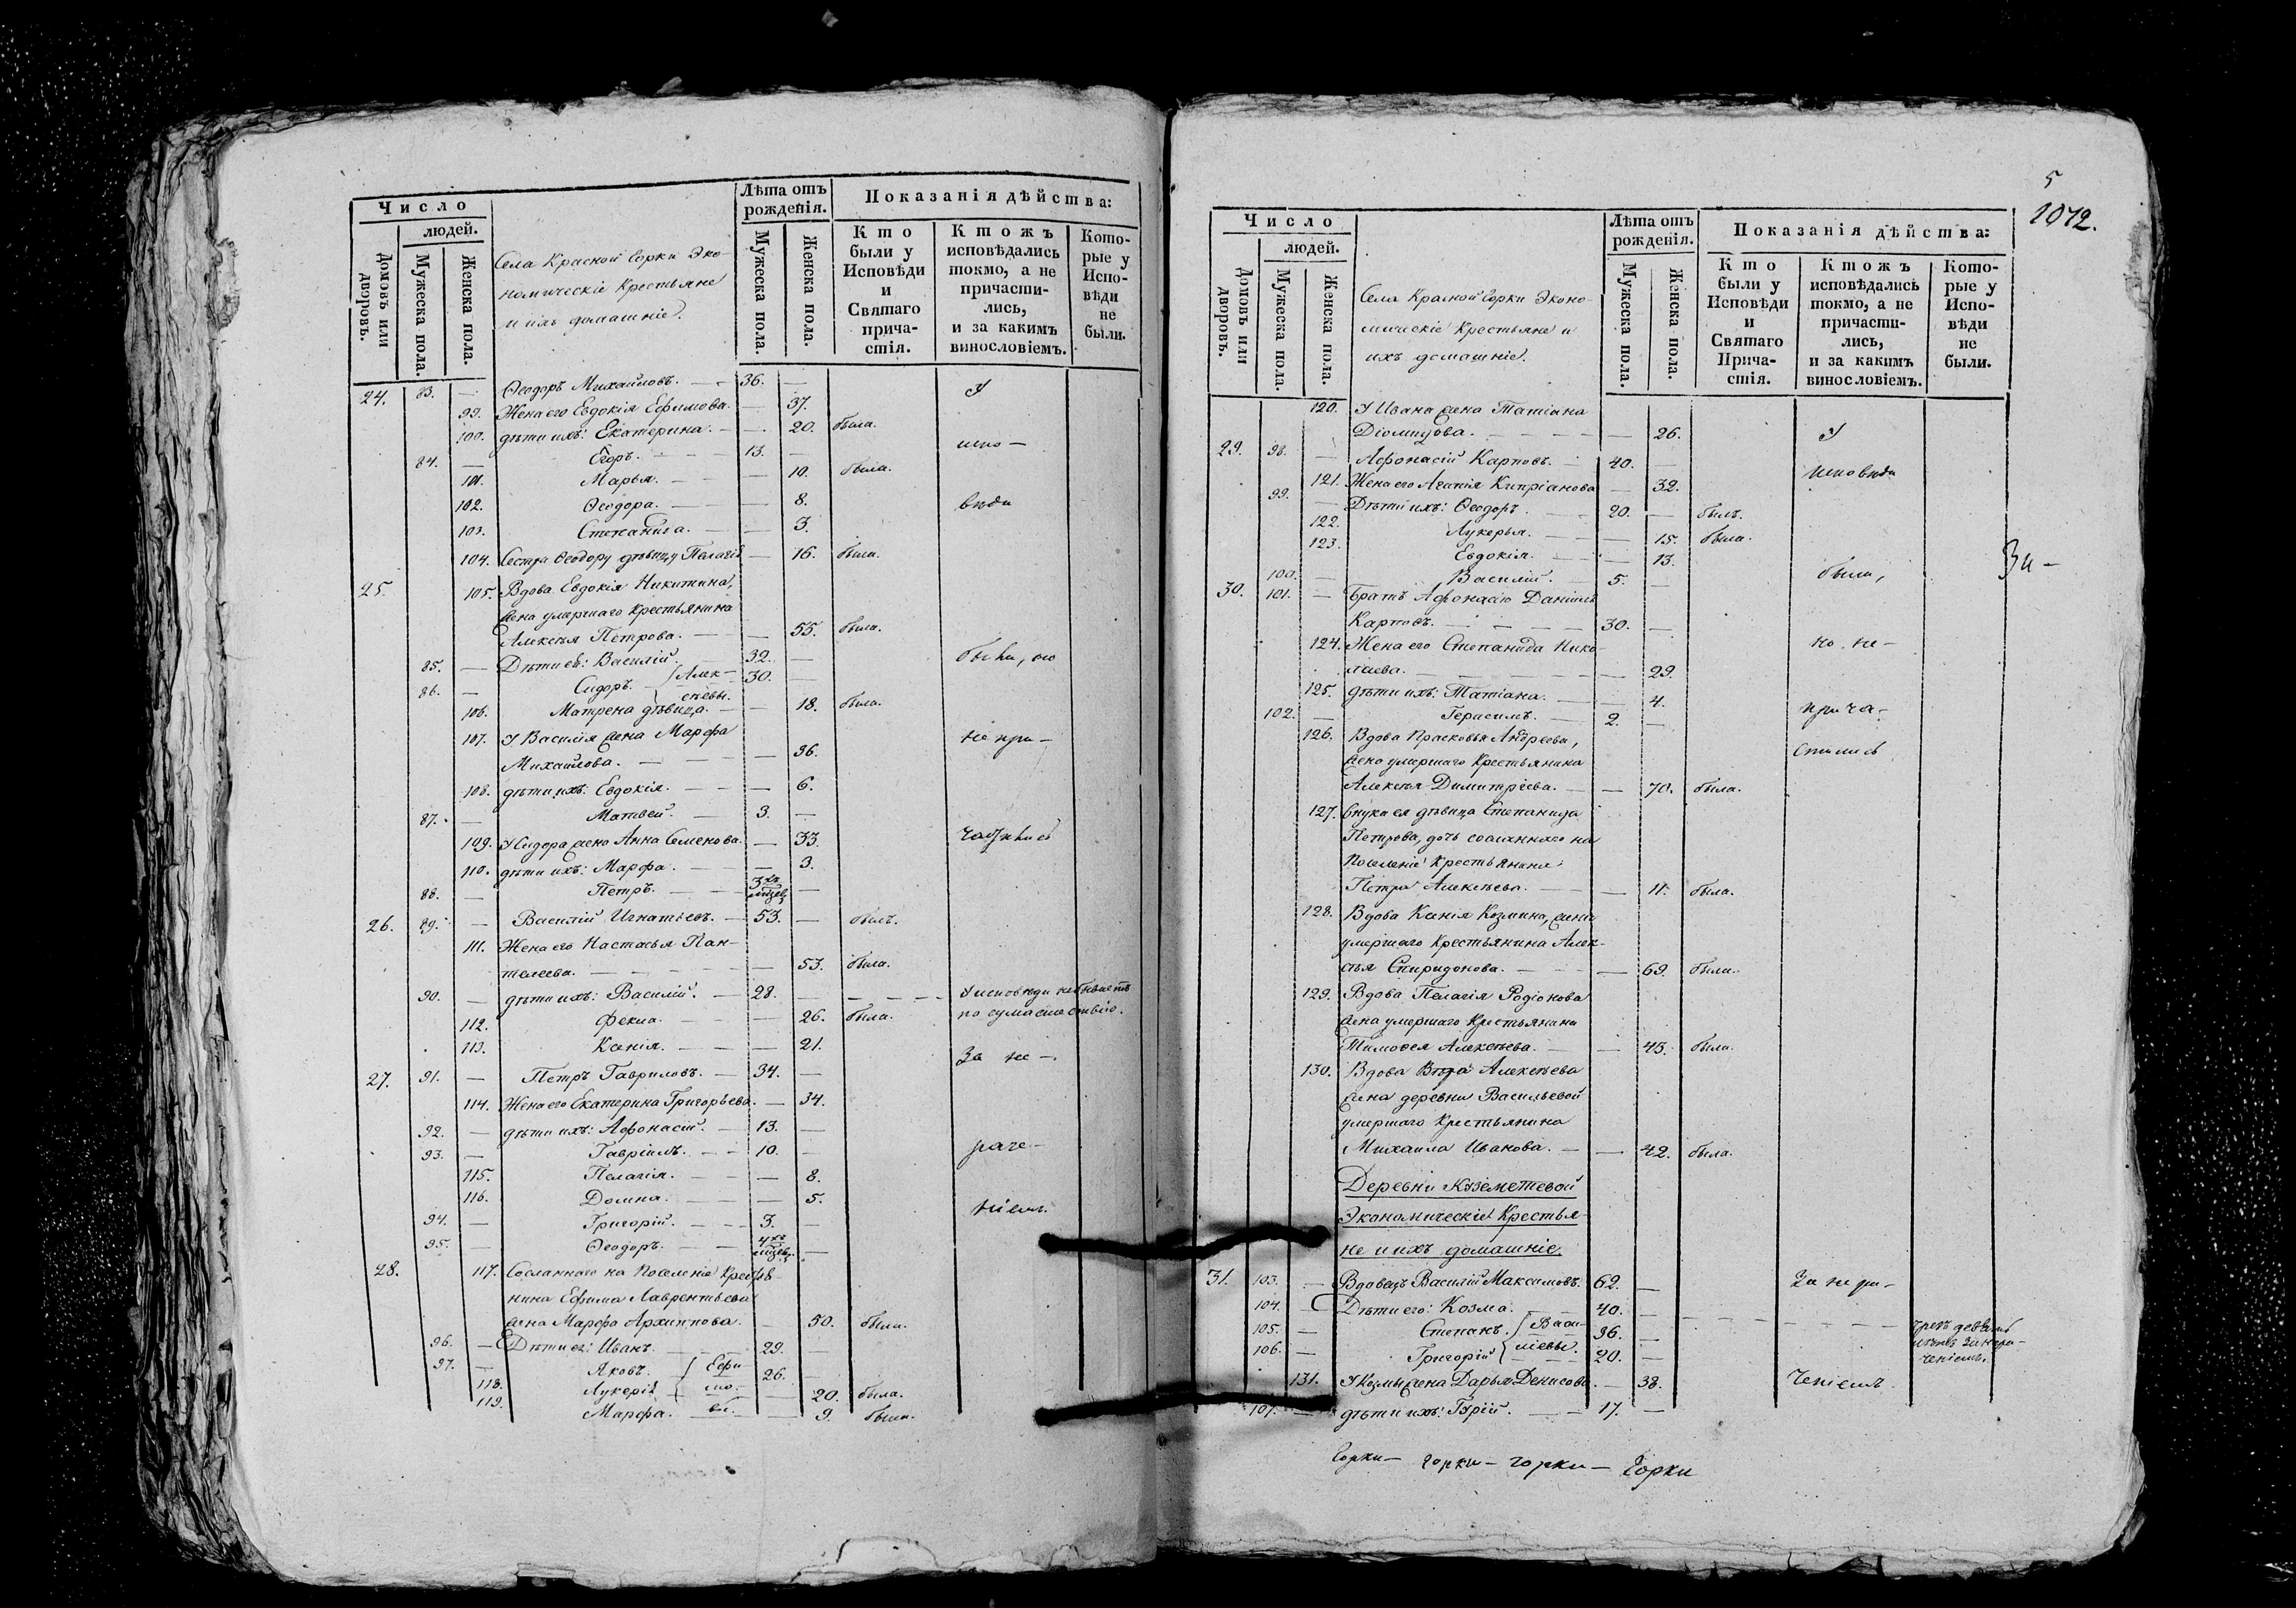 Число
людей.
Домовъ или дворовъ.
Мужеска пола.
Женска пола.
Села Красной Горки Эко-
номическіе Крестьяне
и ихъ домашніе.
Лѣта отъ рожденія.
Мужеска пола.
Женска пола.
Показанія дѣйства:
Кто были у Исповѣди и Святаго причастія.
Ктожъ исповѣдались токмо, а не причастились, и за какимъ винословіемъ.
Которые у Исповѣди не были.
24. 83. — Ѳеодоръ Михайловъ. — 36. — У
99. Жена его Евдокія Ефимова. — 37.
100. дѣти ихъ: Екатерина. — 20. была.
84. — Егоръ. — 13. — испо-
101. Марья. — 10. была.
102. Ѳеодора. — 8. вѣди
103. Степанида. — 3.
104. Сестра Ѳеодору дѣвица Пелагія — 16. была.
25. 105. Вдова Евдокія Никитина,
жена умершаго Крестьянина
Алексѣя Петрова. — 55. была.
85. — Дѣти ея: Василій. 32. — были, но
86. — Сидоръ. Алек- 30. —
сѣевы.
106. Матрена дѣвица. — 18. была.
107. У Василія жена Марфа
Михайлова. — 36. не при-
108. дѣти ихъ: Евдокія. — 6.
87. — Матвей. — 3. —
109. У Сидора жена Анна Семенова. — 33. частились
110. дѣти ихъ: Марфа. — 3.
88. — Петръ. — 3хъ мѣсяц. —
26. 89. — Василій Игнатьевъ. — 53. — былъ.
111. Жена его Настасья Пан-
телеева. — 53. была.
90. — дѣти ихъ: Василій. — 28. — У исповѣди не бываетъ
по сумасшествію.
112. Фекла. — 26. была.
113. Ксенія. — 21. За не-
27. 91. — Петръ Гавриловъ. — 34. —
114. Жена его Екатерина Григорьева. — 34.
92. — дѣти ихъ: Афонасій. — 13. —
93. — Гавріилъ. — 10. — раче-
115. Пелагія. — 8.
116. Домна. — 5. ніемъ.
94. — Григорій. — 3. —
95. — Ѳеодоръ. — 4хъ мѣсяц. —
28. 117. Сосланнаго на поселеніе Крестья-
нина Ефима Лаврентьева
жена Марфа Архиппова. — 50. была.
96. — Дѣти ея: Иванъ. 29. —
97. — Яковъ. Ефи 26.
118. Лукерія — мо- — 20. была.
119. Марфа. вы. — 9. была.
5
1072.
Число
людей.
Домовъ или дворовъ.
Мужеска пола.
Женска пола.
Села Красной Горки Эконо-
мическіе Крестьяне и
ихъ домашніе.
Лѣта отъ рожденія.
Мужеска пола.
Женска пола.
Показанія дѣйства:
Кто были у Исповѣди и Святаго Причастія.
Ктожъ исповѣдались токмо, а не причастились, и за какимъ винословіемъ.
Которые у Исповѣди не были.
120. У Ивана жена Татіана
Діомидова. — 26. У
29. 98. — Афонасій Карповъ. — 40. —
исповѣди
121. Жена его Агапія Кипріанова — 32.
99. — Дѣти ихъ: Ѳеодоръ. — 20. — былъ.
122. Лукерья. — 15. была.
123. Евдокія. — 13.
100. — Василій. — 5. — были,
За-
30. 101. — Братъ Афонасію Даніилъ
Карповъ. — 30. —
124. Жена его Степанида Нико- но не-
лаева. — 29.
125. дѣти ихъ: Татіана. — 4.
102. — Герасимъ. — 2. — прича-
126. Вдова Прасковья Андреева, стились
жена умершаго Крестьянина
Алексѣя Димитріева. — 70. была.
127. Внука ея дѣвица Степанида
Петрова, дочь сосланнаго на
Поселеніе Крестьянина
Петра Алексѣева. — 11. была.
128. Вдова Ксенія Козмина, жена
умершаго Крестьянина Алек-
сѣя Спиридонова. — 69. была.
129. Вдова Пелагія Родіонова
жена умершаго Крестьянина
Тимоѳея Алексѣева. — 45. была.
130. Вдова Вѣра Алексѣева
жена деревни Васильевой
умершаго Крестьянина
Михаила Иванова. — 42. была.
Деревни Кземетевой
Экономическіе Крестья-
не и ихъ домашніе.
31. 103. — Вдовецъ Василій Максимовъ. 62. — За нера-
104. — Дѣти его: Козма. — 40. —
105. — Степанъ. Васи- 36. — чрезъ девять
106. — Григорій льевы. 20. — лѣтъ за нера-
ченіемъ.
131. У Козмы жена Дарья Денисова. — 38. ченіемъ
107. — дѣти ихъ: Гурій. — 17. —
Горки — Горки — Горки — Горки